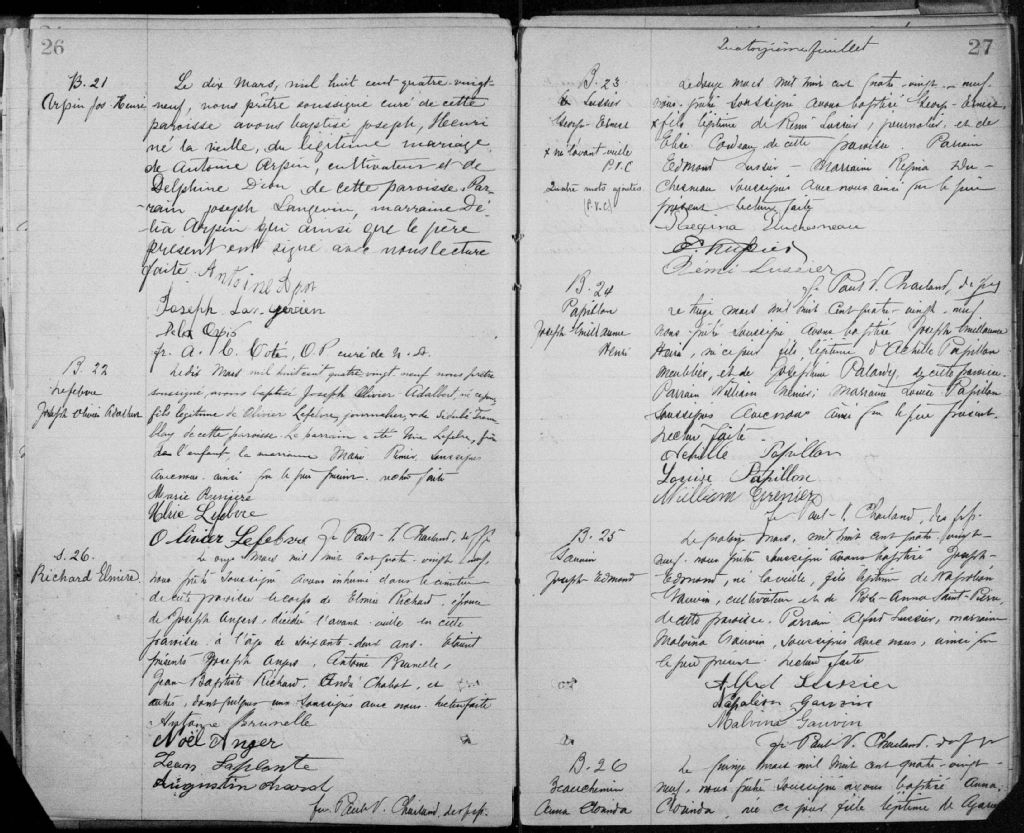 26
B. 21
Arpin Jos. Henri
Le dix Mars, mil huit cent quatre-vingt-
neuf, nous prêtre soussigné curé de cette
paroisse avons baptisé Joseph, Henri
né la veille, du légitime mariage
de Antoine Arpin, cultivateur et de
Delphine de cette paroisse Par-
rain Joseph Langevin, marraine Dé-
lia Arpin qui ainsi que le père
présent ont signé avec nous lecture
faite. Antoine Arpin
Joseph Langevin
Delia
fr. A. Coté, O.P. curé de N. D.
B. 22
Lefebvre
Joseph Olivier Adalbert
Le dix Mars mil huit cent quatre vingt neuf nous prêtre
soussigné, avons baptisé Joseph Olivier Adalbert, né
fils légitime de Olivier Lefebvre, journalier, & de Trem
blay de cette paroisse. Le parrain a été Lefebvre,
de l'enfant, la marraine Marie soussignés
avec nous ainsi que le père lecture faite
Marie
Lefebvre
Olivier Lefebvre fr Paul V. Charland, des ff. p.
S. 26.
Richard Elmire
Le onze Mars mil huit cent quatre-vingt neuf,
nous prêtre soussigné avons inhumé dans le cimetière
de cette paroisse le corps de Elmire Richard, épouse
de Joseph Angers, décédée l'avant veille en cette
paroisse à l'âge de soixante-deux ans. Etaient
présents Joseph Angers, Antoine Brunelle,
Jean Baptiste Richard, André Chabot, et
autres, dont quelques uns soussignés avec nous. Lecture faite
Antoine Brunelle
Noël Anger
Jean Laplante
Augustin
fr. Paul V. Charland, des ff. p.
Quatorzième feuillet
27
B. 23
Lussier
George-Edmond
x né l'avant-veille
P.V.C
Quatre mots ajoutés
(P.V.C)
Le douze mars mil huit cent quatre-vingt-neuf,
nous prêtre soussigné avons baptisé George-Edmond
x fils légitime de Rémi Lussier, journalier, et de
de cette paroisse. Parrain
Edmond Lussier - Marraine Regina Du-
chesneau soussignés avec nous ainsi que le père
présent. Lecture faite
Regina Duchesneau
Rémi Lussier
fr Paul V. Charland, des ff. p.
B. 24
Papillon
Joseph-Guillaume
Henri
Le treize mars mil huit cent quatre-vingt-neuf
nous prêtre soussigné avons baptisé Joseph Guillaume
Henri, né ce jour, fils légitime d'Achille Papillon
meublier, et de Joséphine de cette paroisse.
Parrain William Marraine Louise Papillon
soussignés avec nous ainsi que le père présent.
Lecture faite.
Achille Papillon
Louise Papillon
William Grenier
fr Paul-V. Charland, des ff. p.
B. 25
Gauvin
Joseph Edmond
Le quatorze mars, mil huit cent quatre-vingt-
neuf, nous prêtre soussigné avons baptisé Joseph-
Edmond, né la veille, fils légitime de Napoléon
Gauvin, cultivateur et de Rose-Anna Saint-Pierre,
de cette paroisse. Parrain Alfred Lussier, marraine
Malvina Gauvin, soussignés avec nous, ainsi que
le père présent. Lecture faite
Alfred Lussier
Napoléon Gauvin
Malvina Gauvin
fr Paul V. Charland, des ff. p.
B. 26
Beauchemin
Anna Clorida
Le quinze mars mil huit cent quatre-vingt-
neuf, nous prêtre soussigné avons baptisé Anna
Clorida, née ce jour fille légitime de